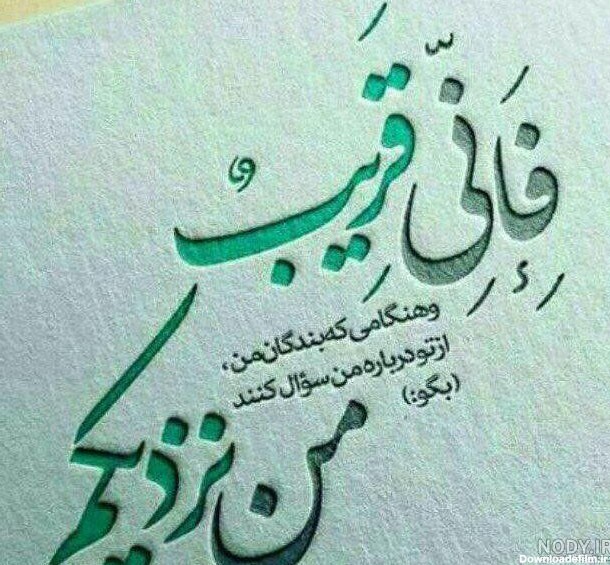 فَإِنِّی قَرِیبٌ
و هنگامی که بندگان من،
از تو درباره من سؤال کنند
(بگو:)
من نزدیکم
NODY.IR
Downloadefilm.ir